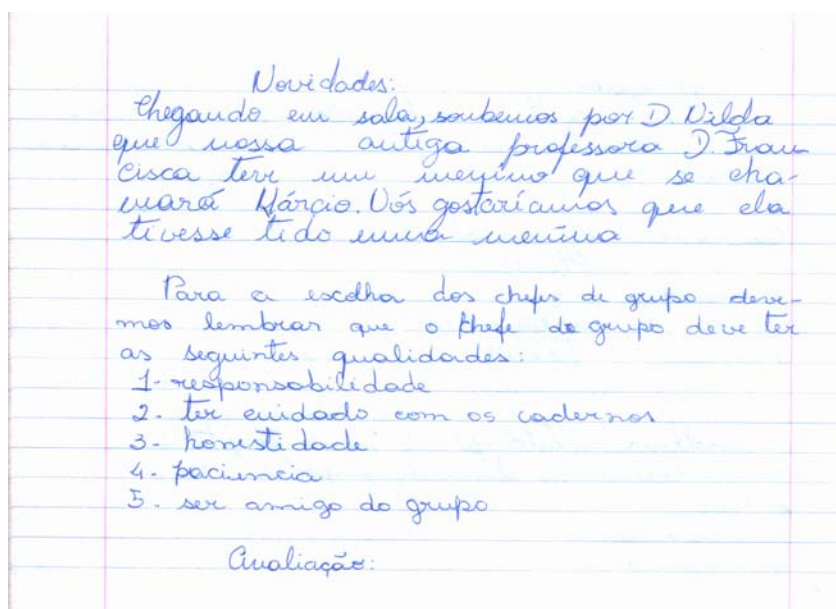 Novidades:
Chegando em sala, soubemos por D. Nilda
que nossa antiga professora D. Fran
cisca teve um menino que se cha-
mará Márcio. Nós gostaríamos que ela
tivesse tido uma menina
Para a escolha dos chefes de grupo deve-
mos lembrar que o chefe do grupo deve ter
as seguintes qualidades:
1- responsabilidade
2- ter cuidado com os cadernos
3- honestidade
4- paciencia
5- ser amigo do grupo
Avaliação: